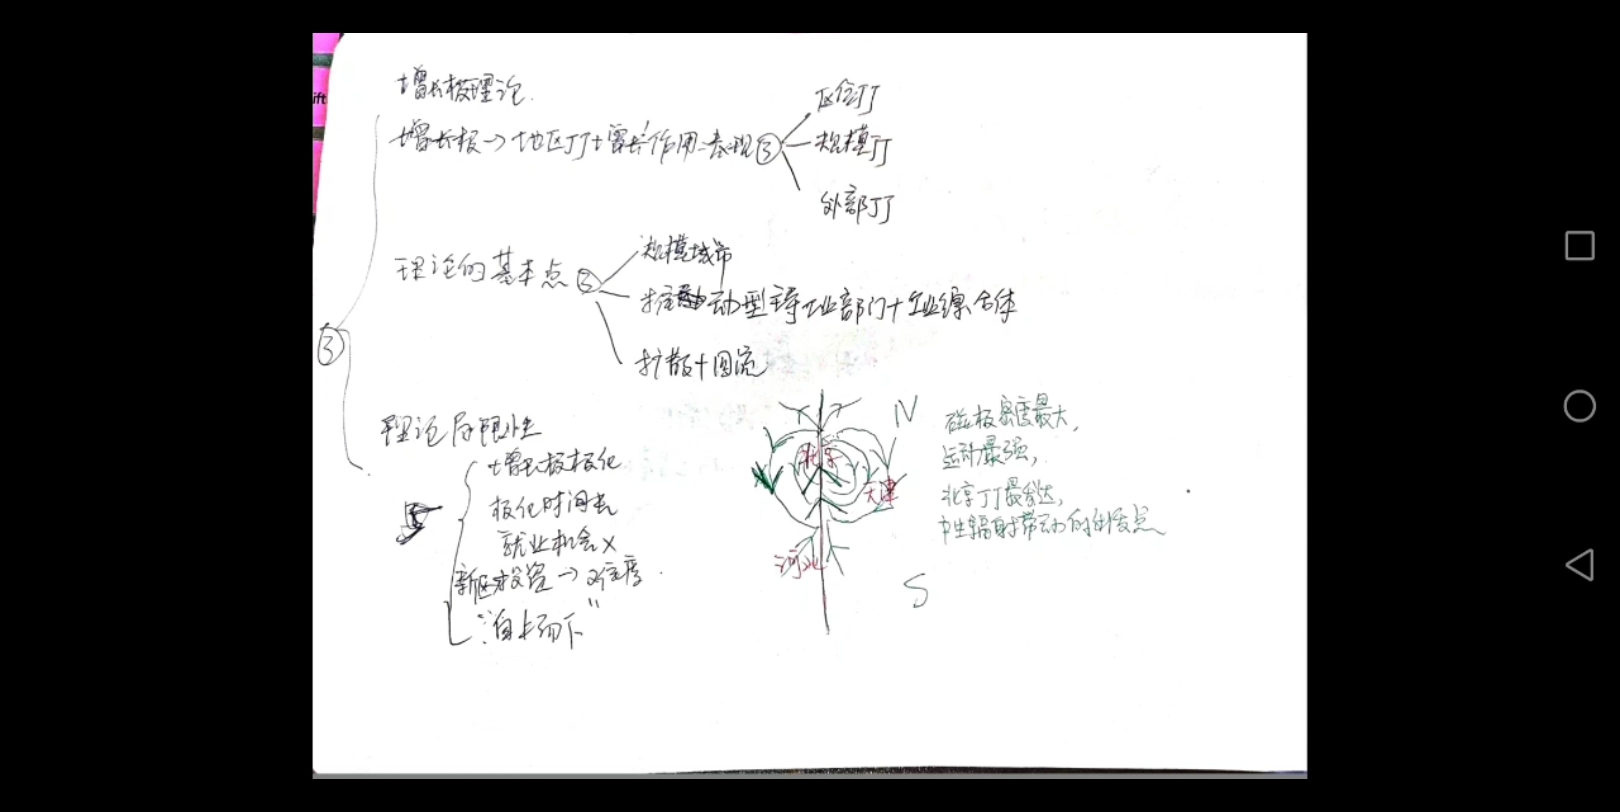 ift
增长极理论.
增长极→地区JJ+增长作用:表现③
区位JJ
规模JJ
外部JJ
理论的基本点③
规模城市
推动型主导工业部门+工业综合体
扩散+回流
③
理论局限性
增长极极化
极化时间长
就业机会×
新区投资→难度.
"自上而下"
N
北京
天津
河北
S
磁极密度最大,
运动最强,
北京JJ最发达,
中生辐射带动的爆发点